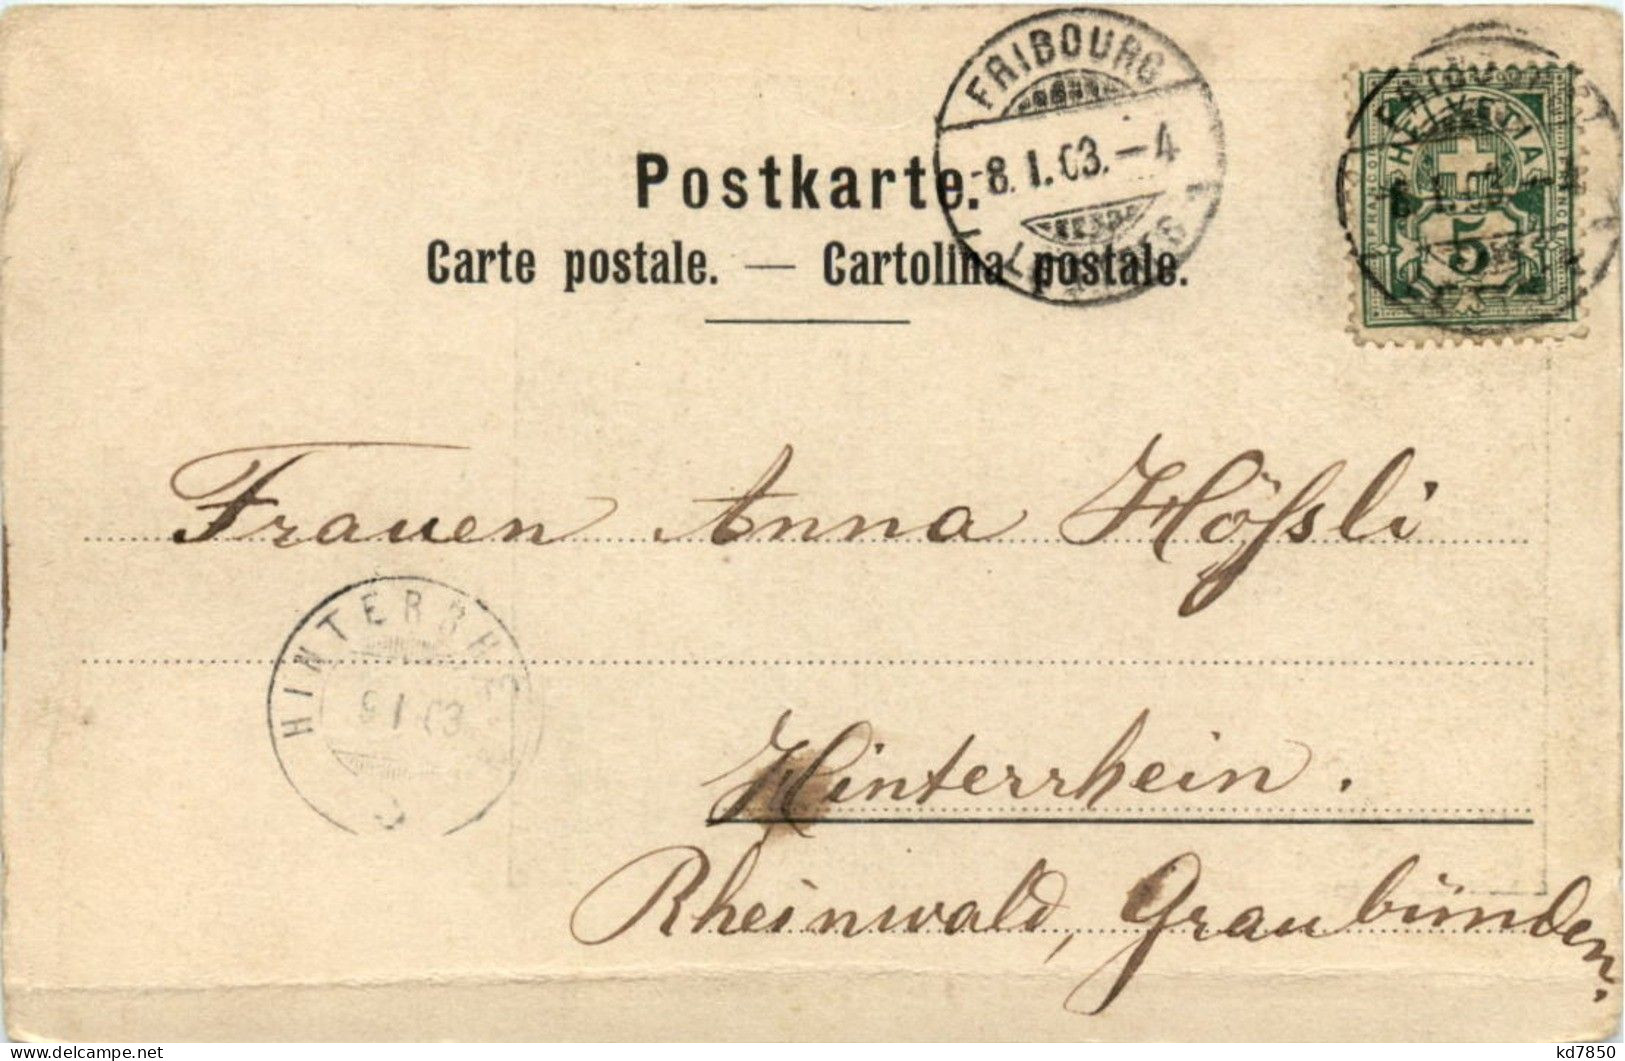 FRIBOURG
-8.I.03.-4
Postkarte.
Carte postale. — Cartolina postale.
HELVETIA
5
Frauen Anna Hößli
HINTERRHE
9 I 03
Hinterrhein.
Rheinwald, Graubünden.
www.delcampe.net
kd7850